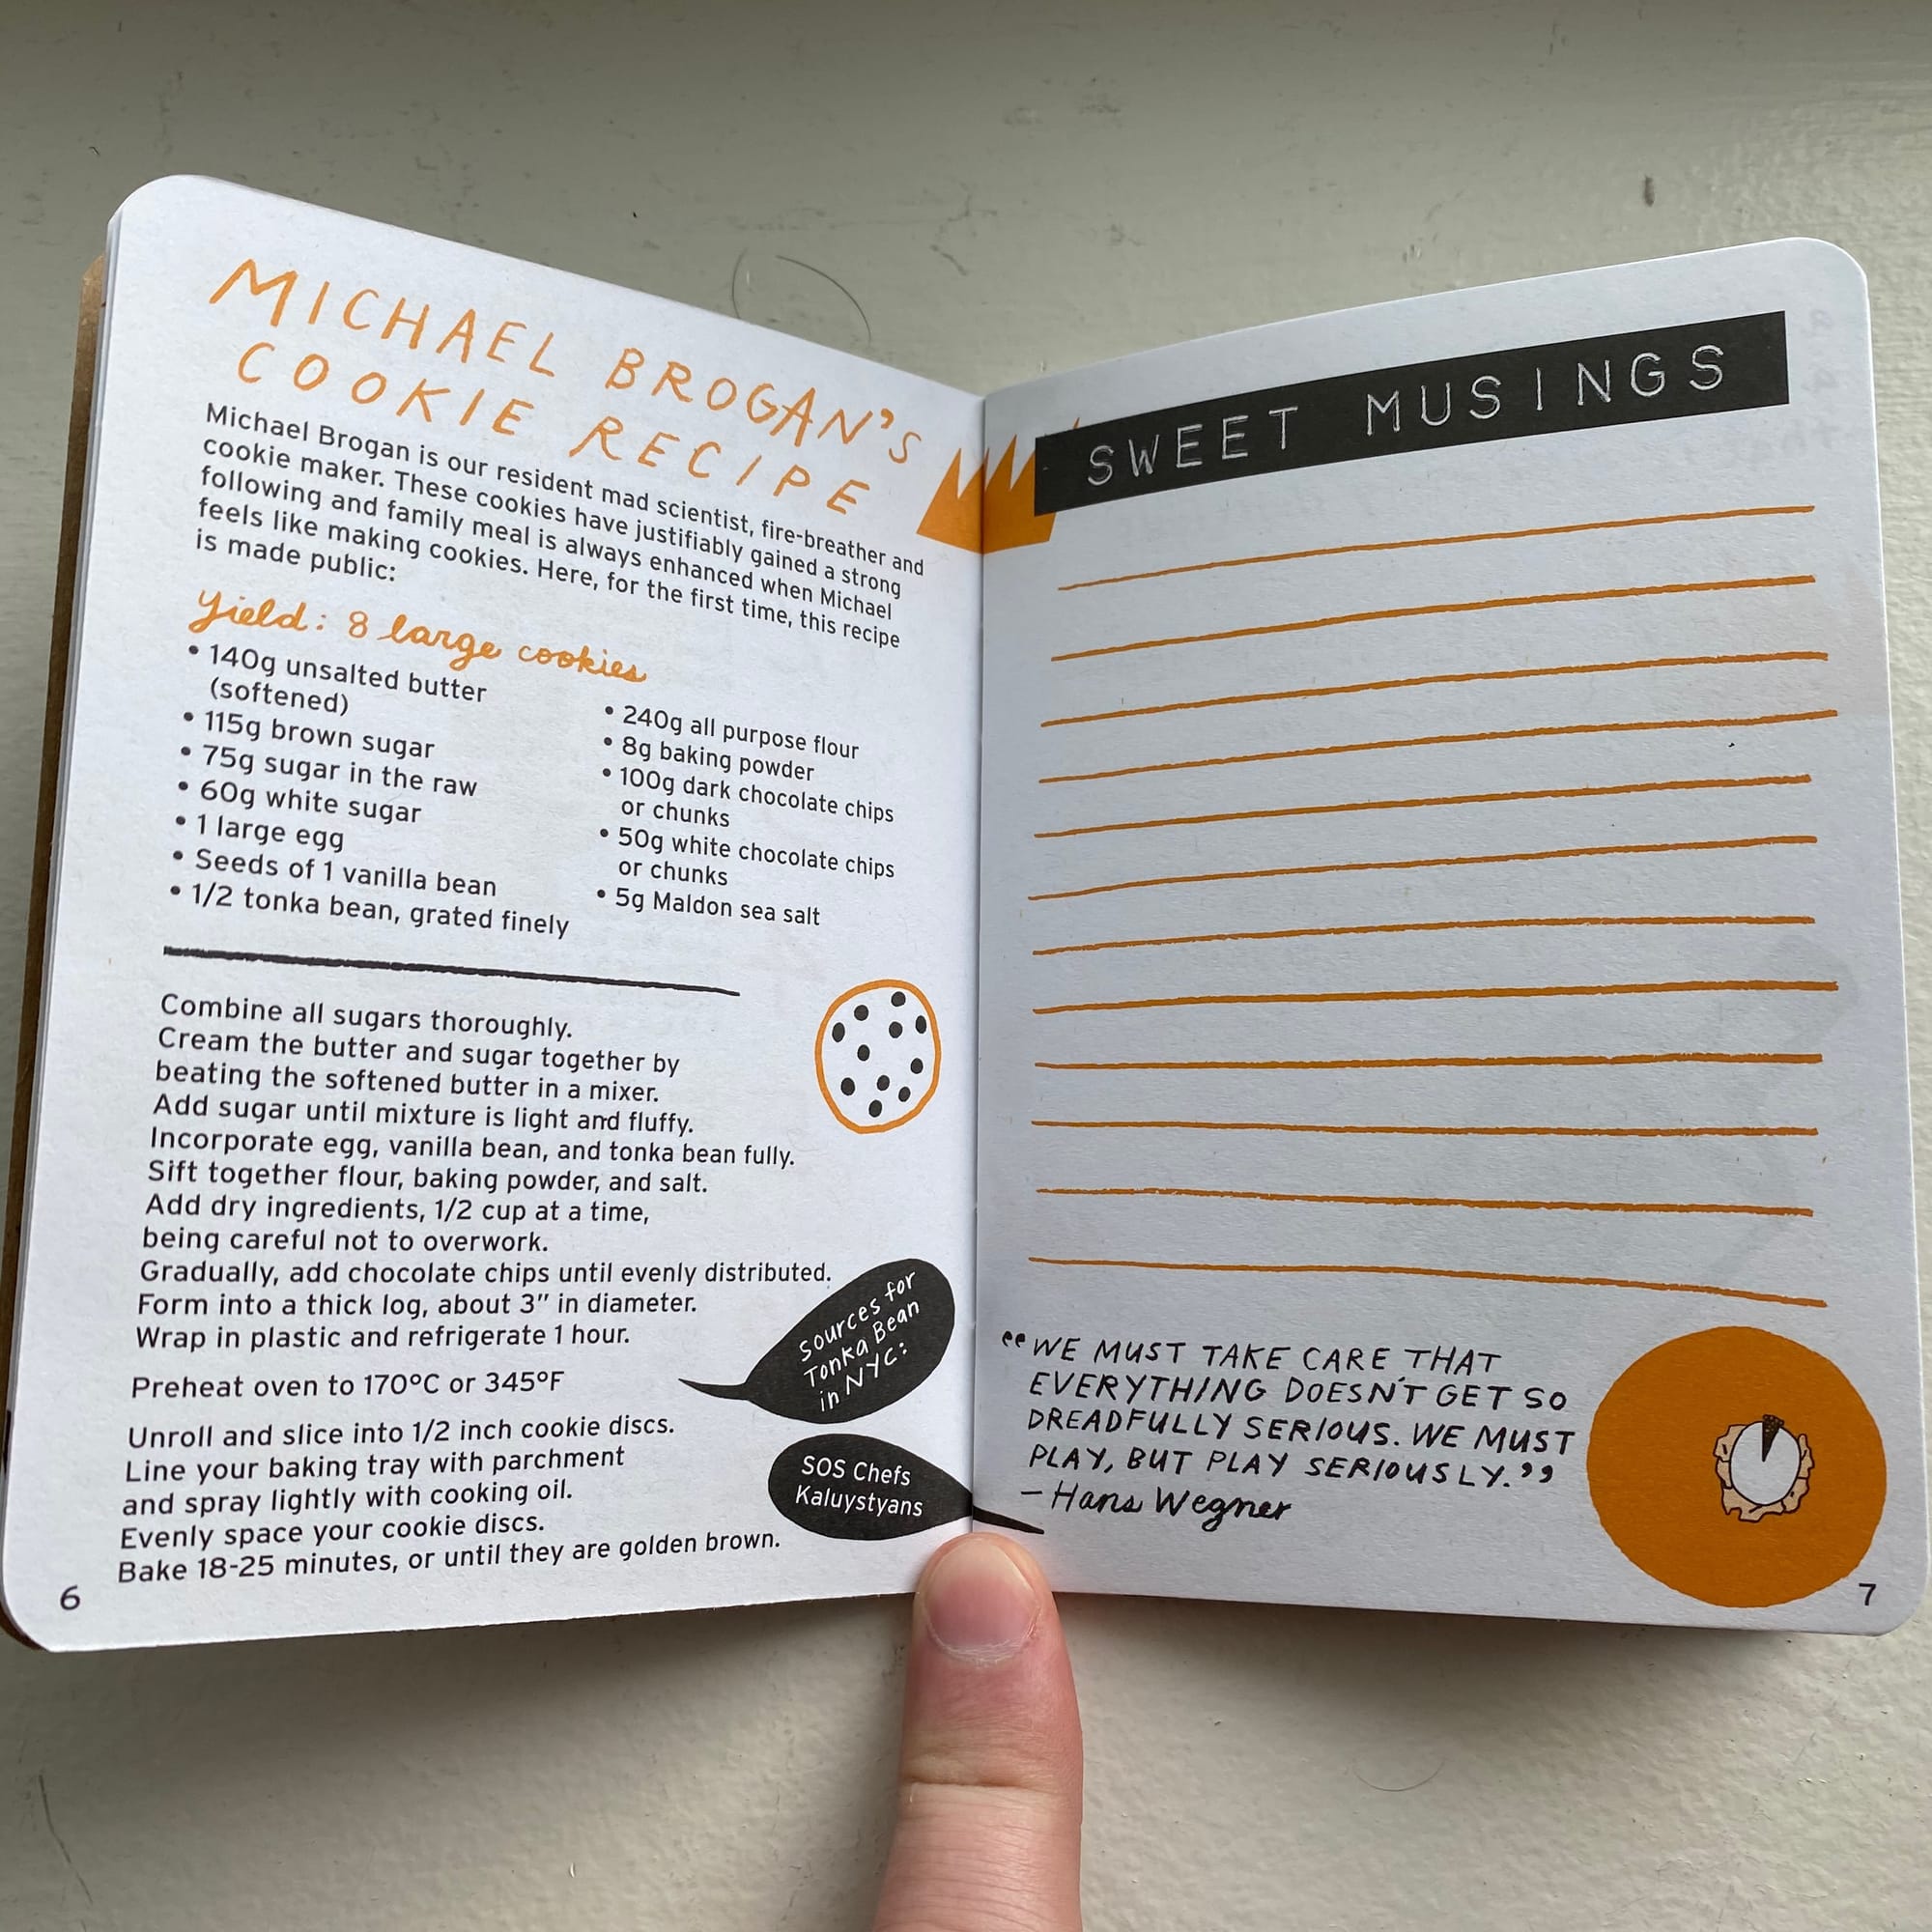 MICHAEL BROGAN'S
COOKIE RECIPE
Michael Brogan is our resident mad scientist, fire-breather and
cookie maker. These cookies have justifiably gained a strong
following and family meal is always enhanced when Michael
feels like making cookies. Here, for the first time, this recipe
is made public:
Yield: 8 large cookies
• 140g unsalted butter
(softened)
• 115g brown sugar
• 75g sugar in the raw
• 60g white sugar
• 1 large egg
• Seeds of 1 vanilla bean
• 1/2 tonka bean, grated finely
• 240g all purpose flour
• 8g baking powder
• 100g dark chocolate chips
or chunks
• 50g white chocolate chips
or chunks
• 5g Maldon sea salt
Combine all sugars thoroughly.
Cream the butter and sugar together by
beating the softened butter in a mixer.
Add sugar until mixture is light and fluffy.
Incorporate egg, vanilla bean, and tonka bean fully.
Sift together flour, baking powder, and salt.
Add dry ingredients, 1/2 cup at a time,
being careful not to overwork.
Gradually, add chocolate chips until evenly distributed.
Form into a thick log, about 3" in diameter.
Wrap in plastic and refrigerate 1 hour.
Preheat oven to 170°C or 345°F
Unroll and slice into 1/2 inch cookie discs.
Line your baking tray with parchment
and spray lightly with cooking oil.
Evenly space your cookie discs.
Bake 18-25 minutes, or until they are golden brown.
Sources for
Tonka Bean
in NYC:
SOS Chefs
Kaluystyans
6
SWEET MUSINGS
"WE MUST TAKE CARE THAT
EVERYTHING DOESN'T GET SO
DREADFULLY SERIOUS. WE MUST
PLAY, BUT PLAY SERIOUSLY."
– Hans Wegner
7